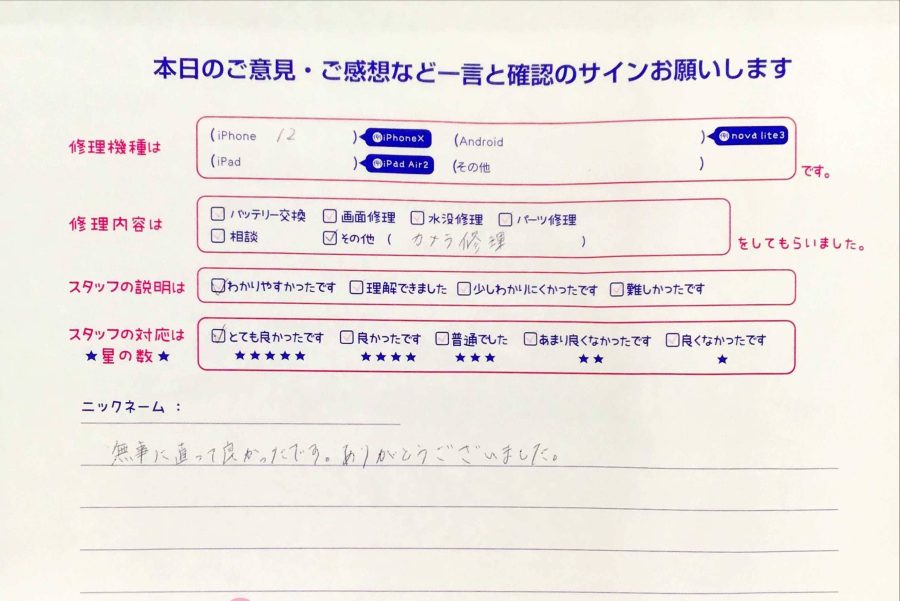 本日のご意見・ご感想など一言と確認のサインお願いします
修理機種は (iPhone 12 ) 例iPhoneX (Android ) 例nova lite3
(iPad ) 例iPad Air2 (その他 ) です。
修理内容は □バッテリー交換 □画面修理 □水没修理 □パーツ修理
□相談 ☑その他 ( カメラ修理 ) をしてもらいました。
スタッフの説明は ☑わかりやすかったです □理解できました □少しわかりにくかったです □難しかったです
スタッフの対応は ☑とても良かったです □良かったです □普通でした □あまり良くなかったです □良くなかったです
★星の数★ ★★★★★ ★★★★ ★★★ ★★ ★
ニックネーム：
無事に直って良かったです。ありがとうございました。